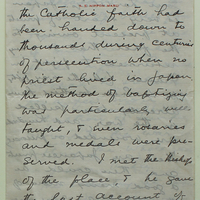 the Catholic faith had
been handed down to
thousands during centuries
of persecution when no
priest lived in Japan
the method of baptizing
was particularly well
taught, & even rosaries
and medals were pre-
served. I met the
of the place, & he gave
the last account of